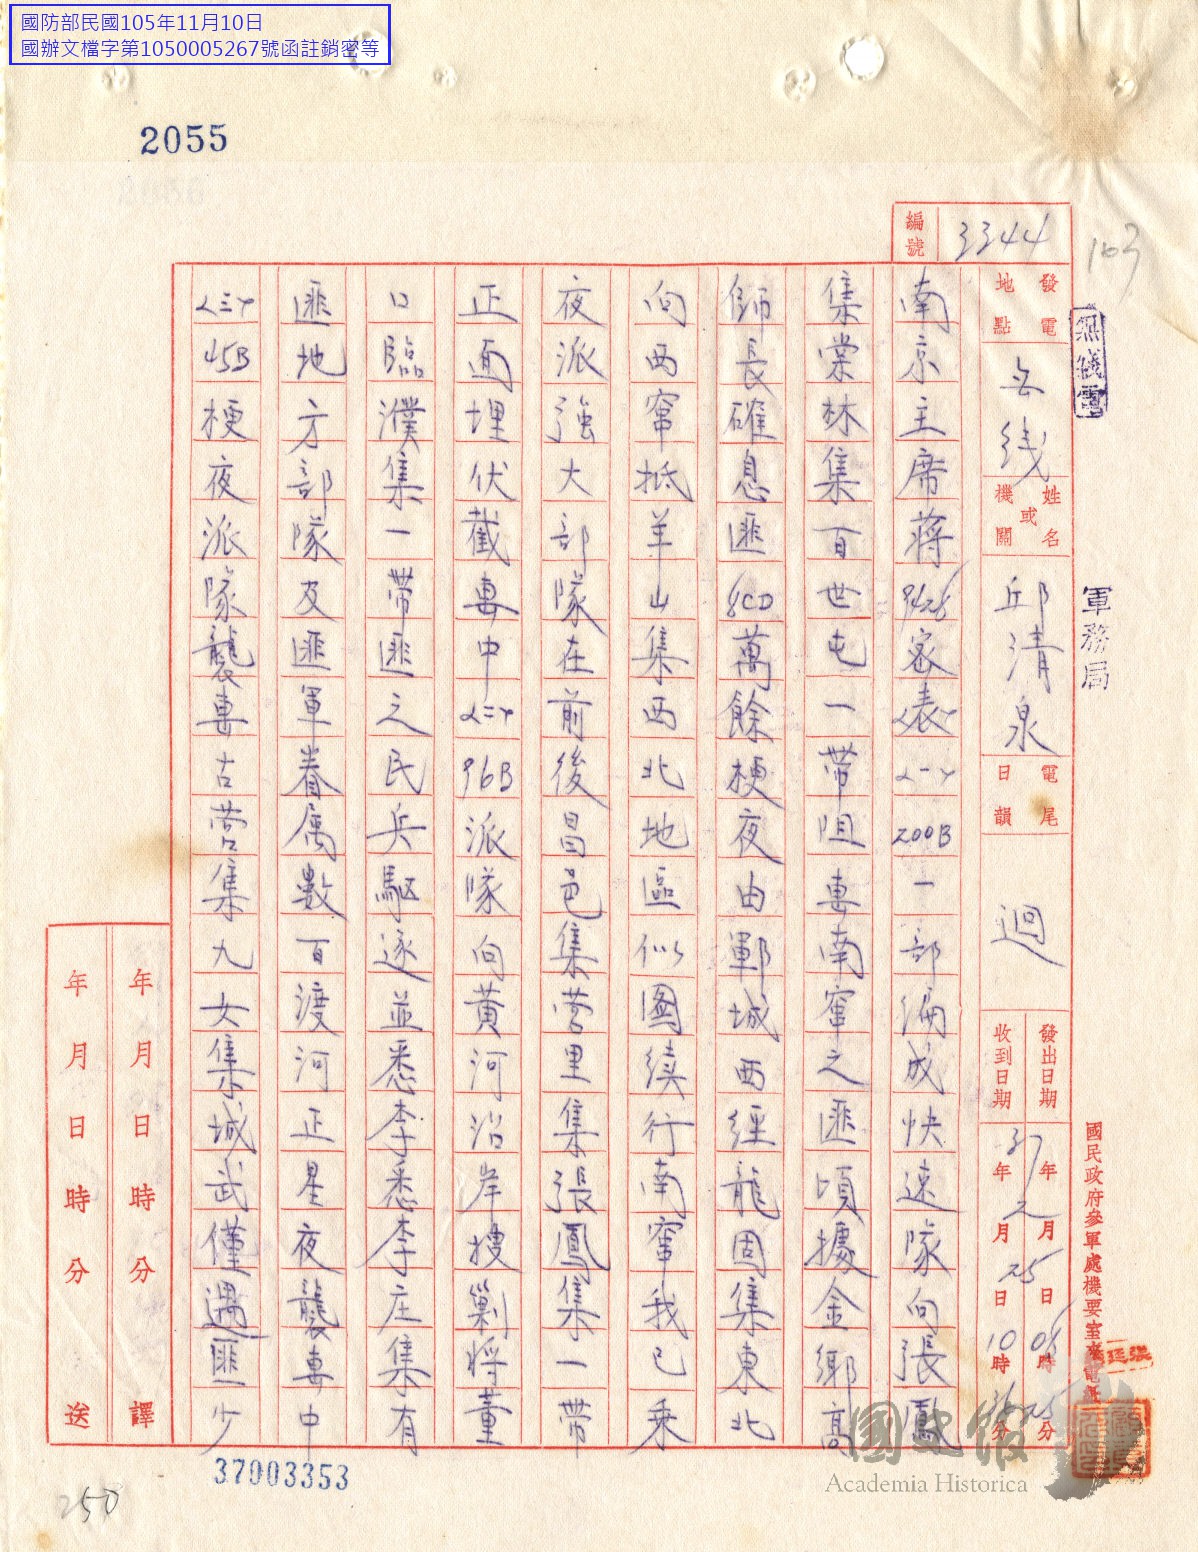 國防部民國105年11月10日
國辦文檔字第1050005267號函註銷密等
2055
編號 3344
163
無線電
軍務局
發電地點 无线
姓名或機關 邱清泉
電尾日韻 迴
發出日期 37年2月25日08時25分
收到日期 年月日10時分
國民政府參軍處機要室來電紙
南京主席蔣 密表〈一〉200B一部编成快速隊向張鳳
集棠林集百世屯一帶阻專南竄之匪頃據金鄉高
師長確息匪8CD萬餘梗夜由鄆城西經龍固集東北
向西竄抵羊山集西北地區似图续行南竄我已乘
夜派强大部隊在前後昌邑集营里集張鳳集一带
正面埋伏截專中〈二〉96B派隊向黃河沿岸搜剿将董
口臨濮集一帶匪之民兵駆逐並悉李悉李庄集有
匪地方部隊及匪軍眷属數百渡河正星夜襲專中
〈三〉45B梗夜派隊襲專古营集九女集城武僅遇匪少
年月日時分譯
年月日時分送
37003353
250
國史館
Academia Historica